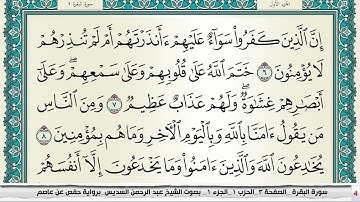 الجزء الأول سورة البقرة ٢
إِنَّ ٱلَّذِينَ كَفَرُواْ سَوَآءٌ عَلَيۡهِمۡ ءَأَنذَرۡتَهُمۡ أَمۡ لَمۡ تُنذِرۡهُمۡ
لَا يُؤۡمِنُونَ ٦ خَتَمَ ٱللَّهُ عَلَىٰ قُلُوبِهِمۡ وَعَلَىٰ سَمۡعِهِمۡۖ وَعَلَىٰٓ
أَبۡصَٰرِهِمۡ غِشَٰوَةٞۖ وَلَهُمۡ عَذَابٌ عَظِيمٞ ٧ وَمِنَ ٱلنَّاسِ
مَن يَقُولُ ءَامَنَّا بِٱللَّهِ وَبِٱلۡيَوۡمِ ٱلۡأٓخِرِ وَمَا هُم بِمُؤۡمِنِينَ ٨
يُخَٰدِعُونَ ٱللَّهَ وَٱلَّذِينَ ءَامَنُواْ وَمَا يَخۡدَعُونَ إِلَّآ أَنفُسَهُمۡ
سورة البقرة الصفحة ٣ الحزب ١ الجزء ١ بصوت الشيخ عبد الرحمن السديس برواية حفص عن عاصم 4